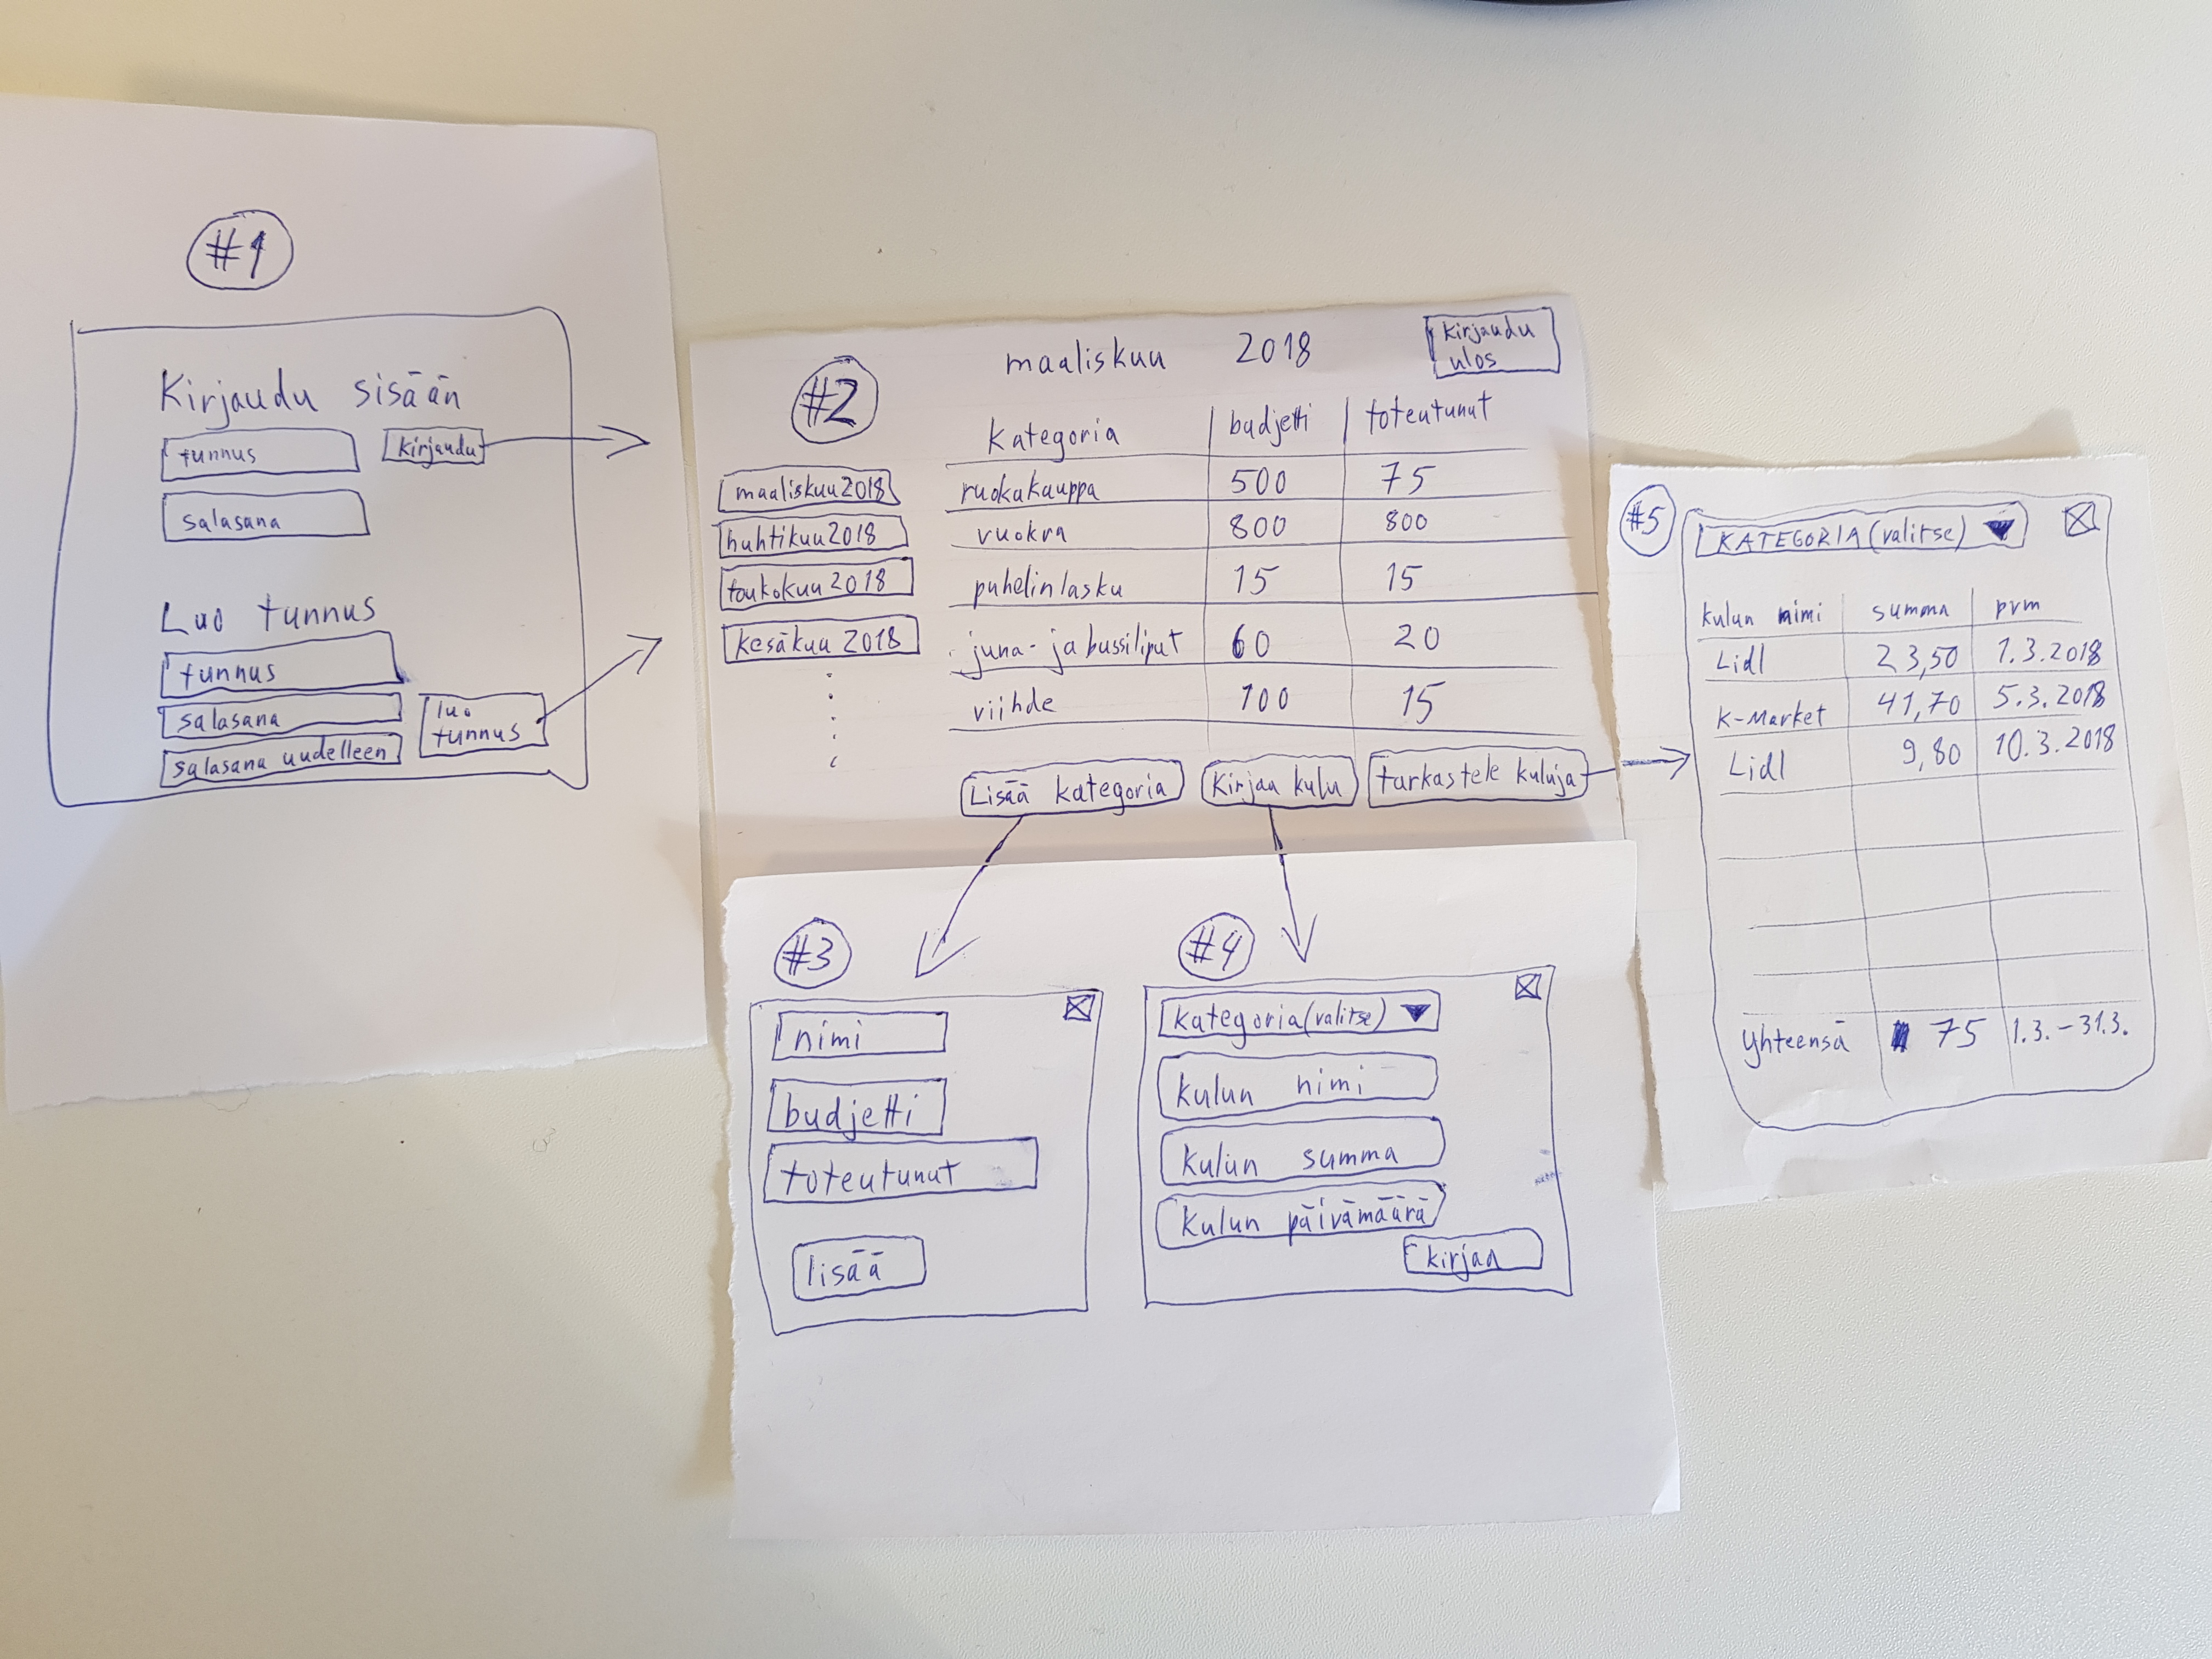 #1
Kirjaudu sisään
tunnus
Kirjaudu
salasana
Luo tunnus
tunnus
salasana
salasana uudelleen
luo
tunnus
#2
maaliskuu 2018
Kirjaudu
ulos
maaliskuu 2018
huhtikuu 2018
toukokuu 2018
kesäkuu 2018
Kategoria budjetti toteutunut
ruokakauppa 500 75
vuokra 800 800
puhelinlasku 15 15
juna- ja bussiliput 60 20
viihde 100 15
Lisää kategoria
Kirjaa kulu
tarkastele kuluja
#3
nimi
budjetti
toteutunut
lisää
#4
Kategoria (valitse)
kulun nimi
kulun summa
kulun päivämäärä
kirjaa
#5
KATEGORIA (valitse)
kulun nimi summa pvm
Lidl 23,50 1.3.2018
K-Market 41,70 5.3.2018
Lidl 9,80 10.3.2018
Yhteensä 75 1.3.-31.3.